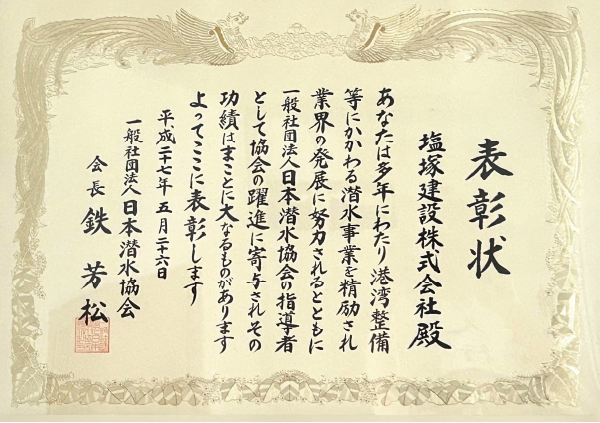 表彰状
塩塚建設株式会社殿
あなたは多年にわたり港湾整備
等にかかわる潜水事業を精励され
業界の発展に努力されるとともに
一般社団法人日本潜水協会の指導者
として協会の躍進に寄与されその
功績はまことに大なるものがあります
よってここに表彰します
平成二十七年五月二十六日
一般社団法人日本潜水協会
会長 鉄芳松